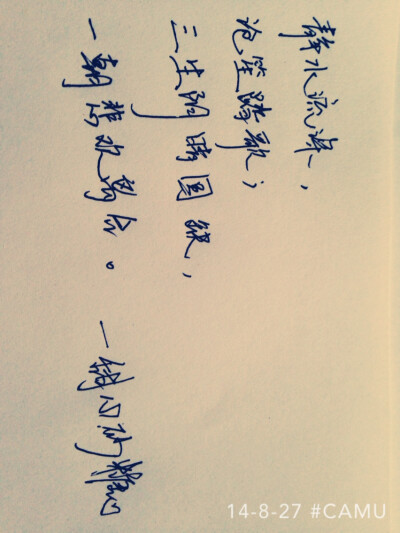 静水流深，
沧笙踏歌；
三生阴晴圆缺，
一朝悲欢离合。
14-8-27 #CAMU